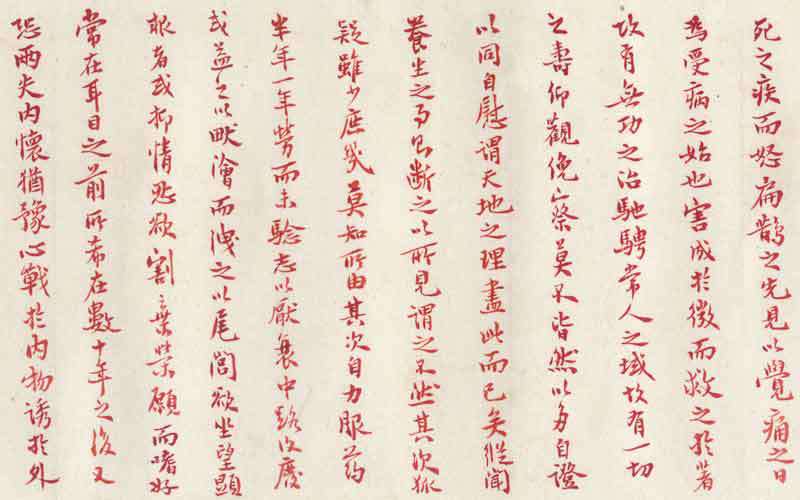 死之疾而怒扁鵲之先見以覺痛之日
為受病之始也害成於微而救之於著
故有無功之治馳騁常人之域故有一切
之壽仰觀俛察莫不皆然以多自證
以同自慰謂天地之理盡此而已矣縱聞
養生之事則斷之以所見謂之不然其次狐
疑雖少庶幾莫知所由其次自力服药
半年一年勞而未驗志以厭衰中路復廢
或益之以畎澮而洩之以尾閭欲坐望顯
報者或抑情忍欲割棄榮願而嗜好
常在耳目之前所希在數十年之後又
恐兩失內懷猶豫心戰於內物誘於外